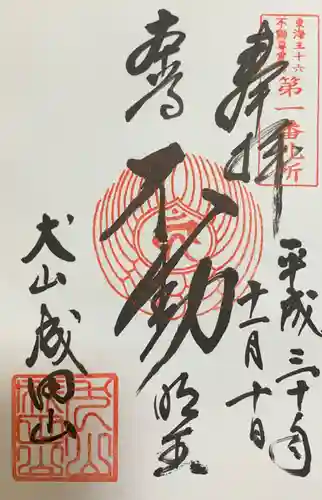 奉拝
東海三十六
不動尊霊場
第一番札所
平成三十年
十一月十日
本尊
不動
明王
犬山成田山